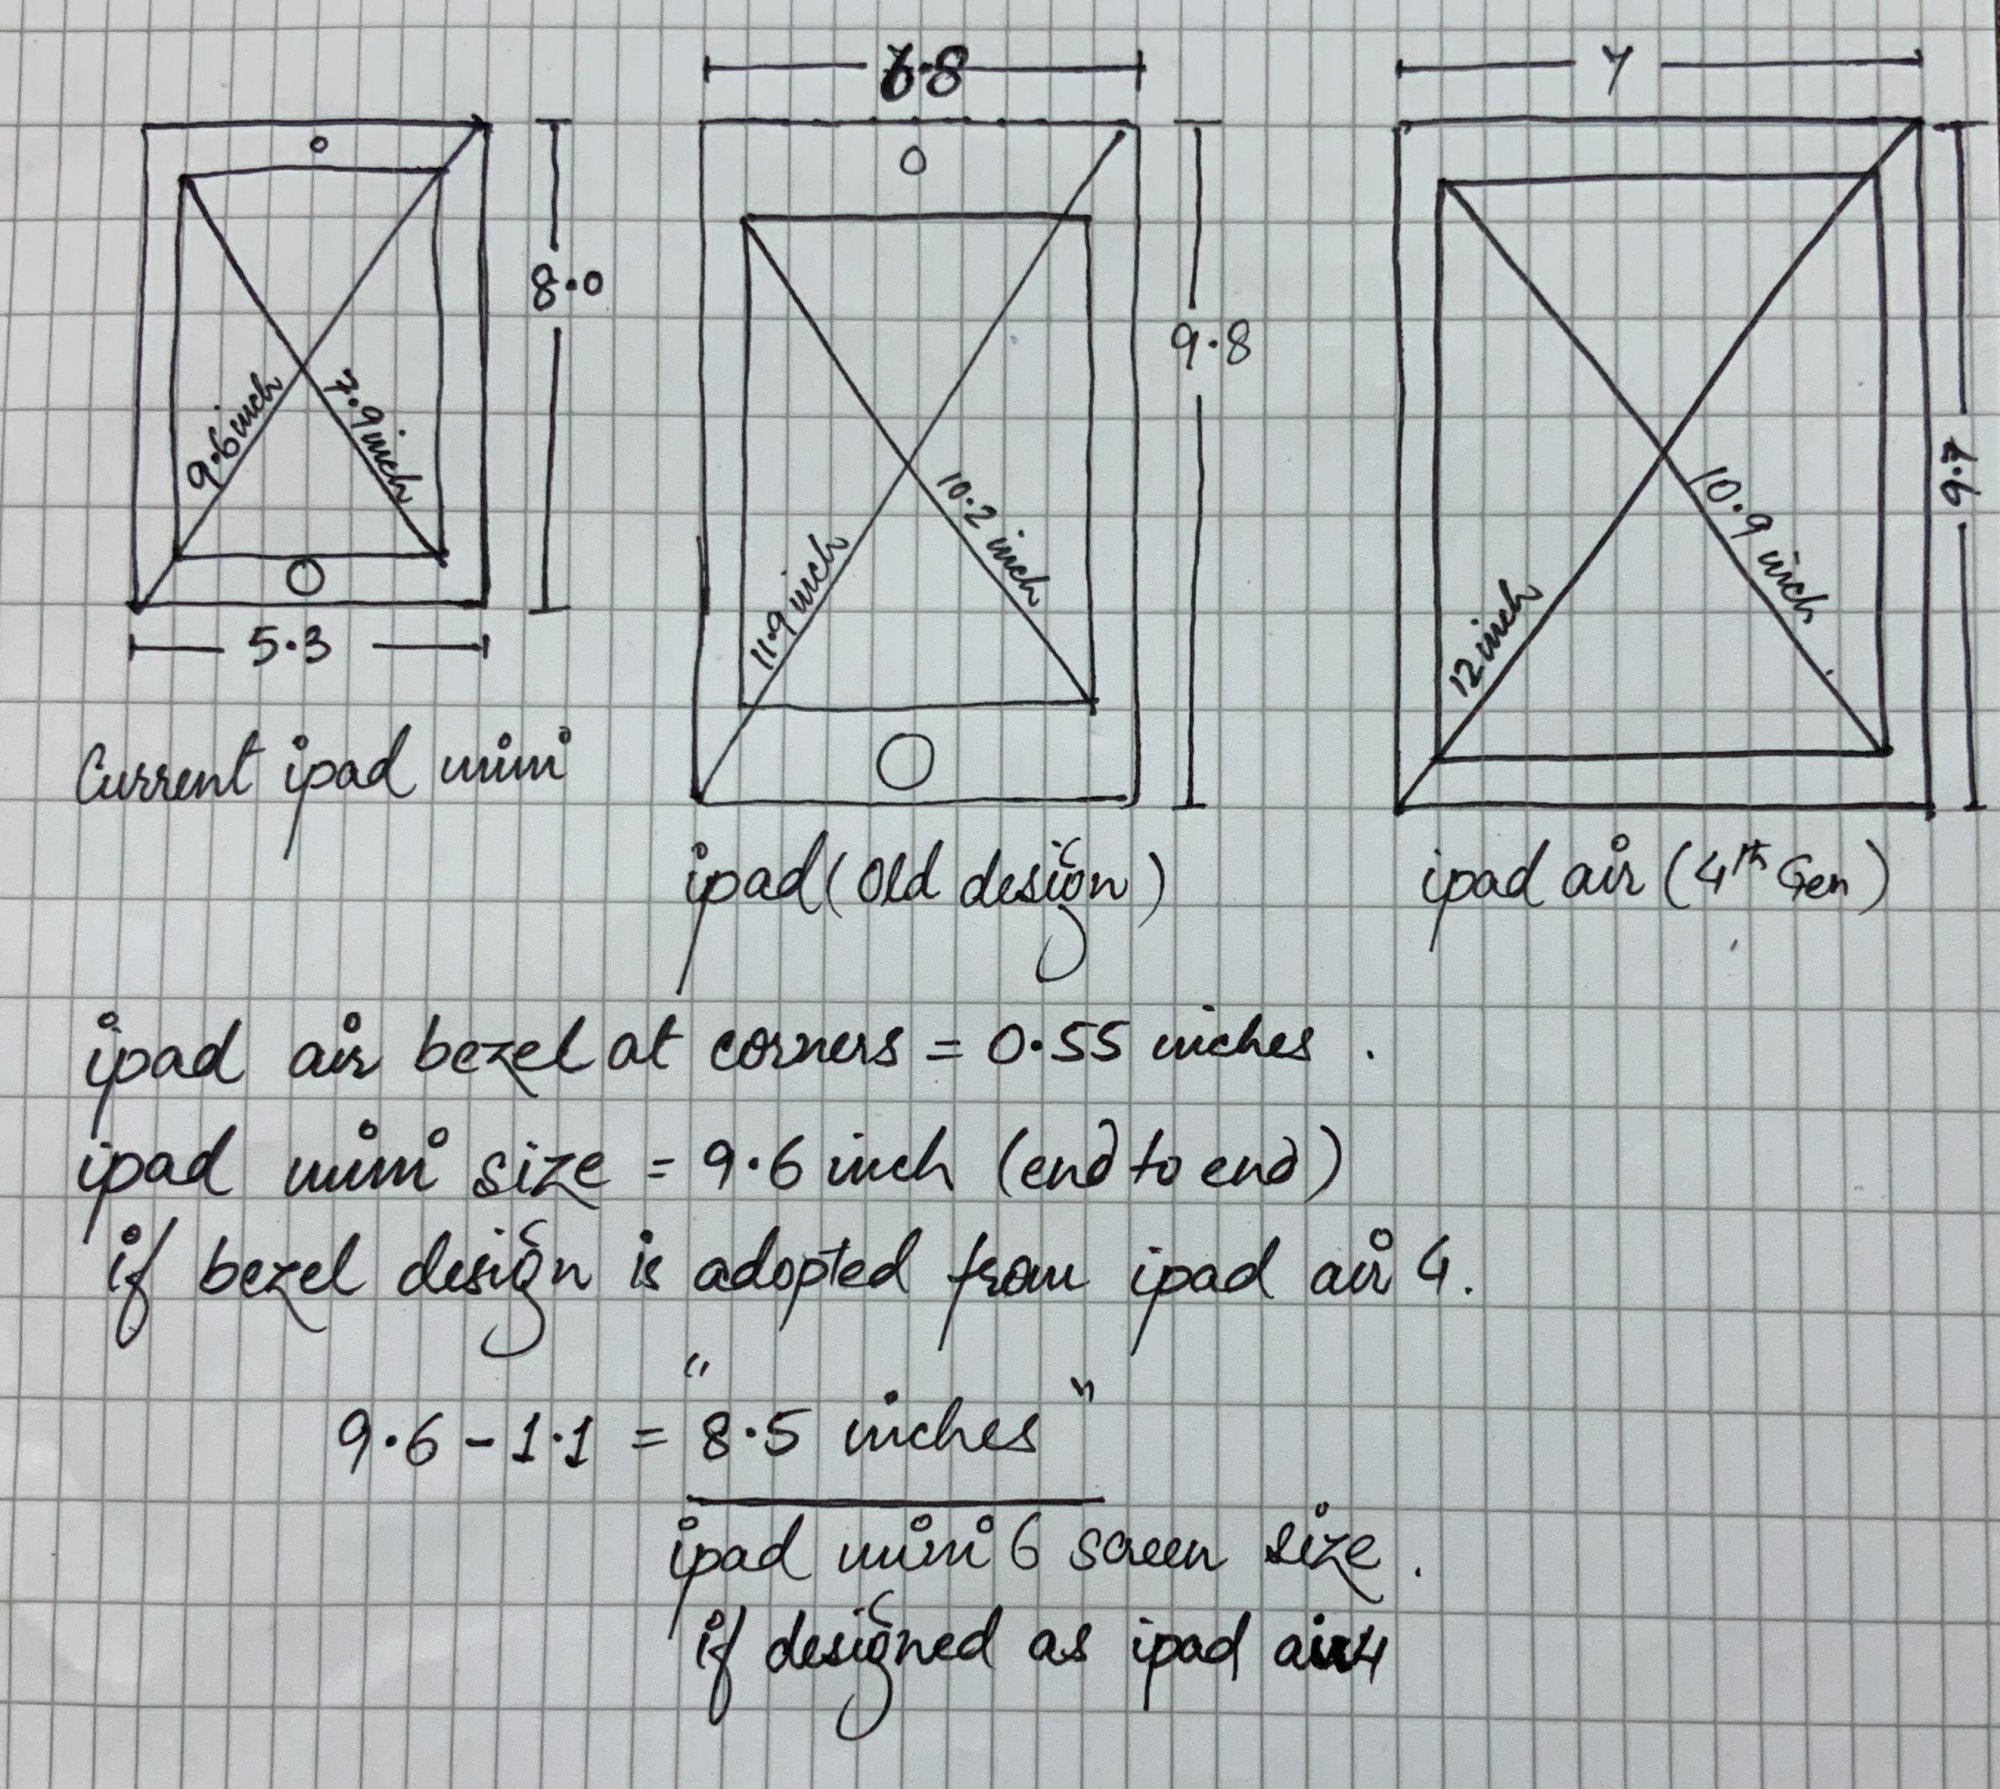 6.8
7
8.0
9.8
9.7
9.6 inch
7.9 inch
11.9 inch
10.2 inch
12 inch
10.9 inch
5.3
Current ipad mini
ipad (Old design)
ipad air (4th Gen)
ipad air bezel at corners = 0.55 inches.
ipad mini size = 9.6 inch (end to end)
if bezel design is adopted from ipad air 4.
9.6 - 1.1 = "8.5 inches"
ipad mini 6 screen size.
if designed as ipad air 4